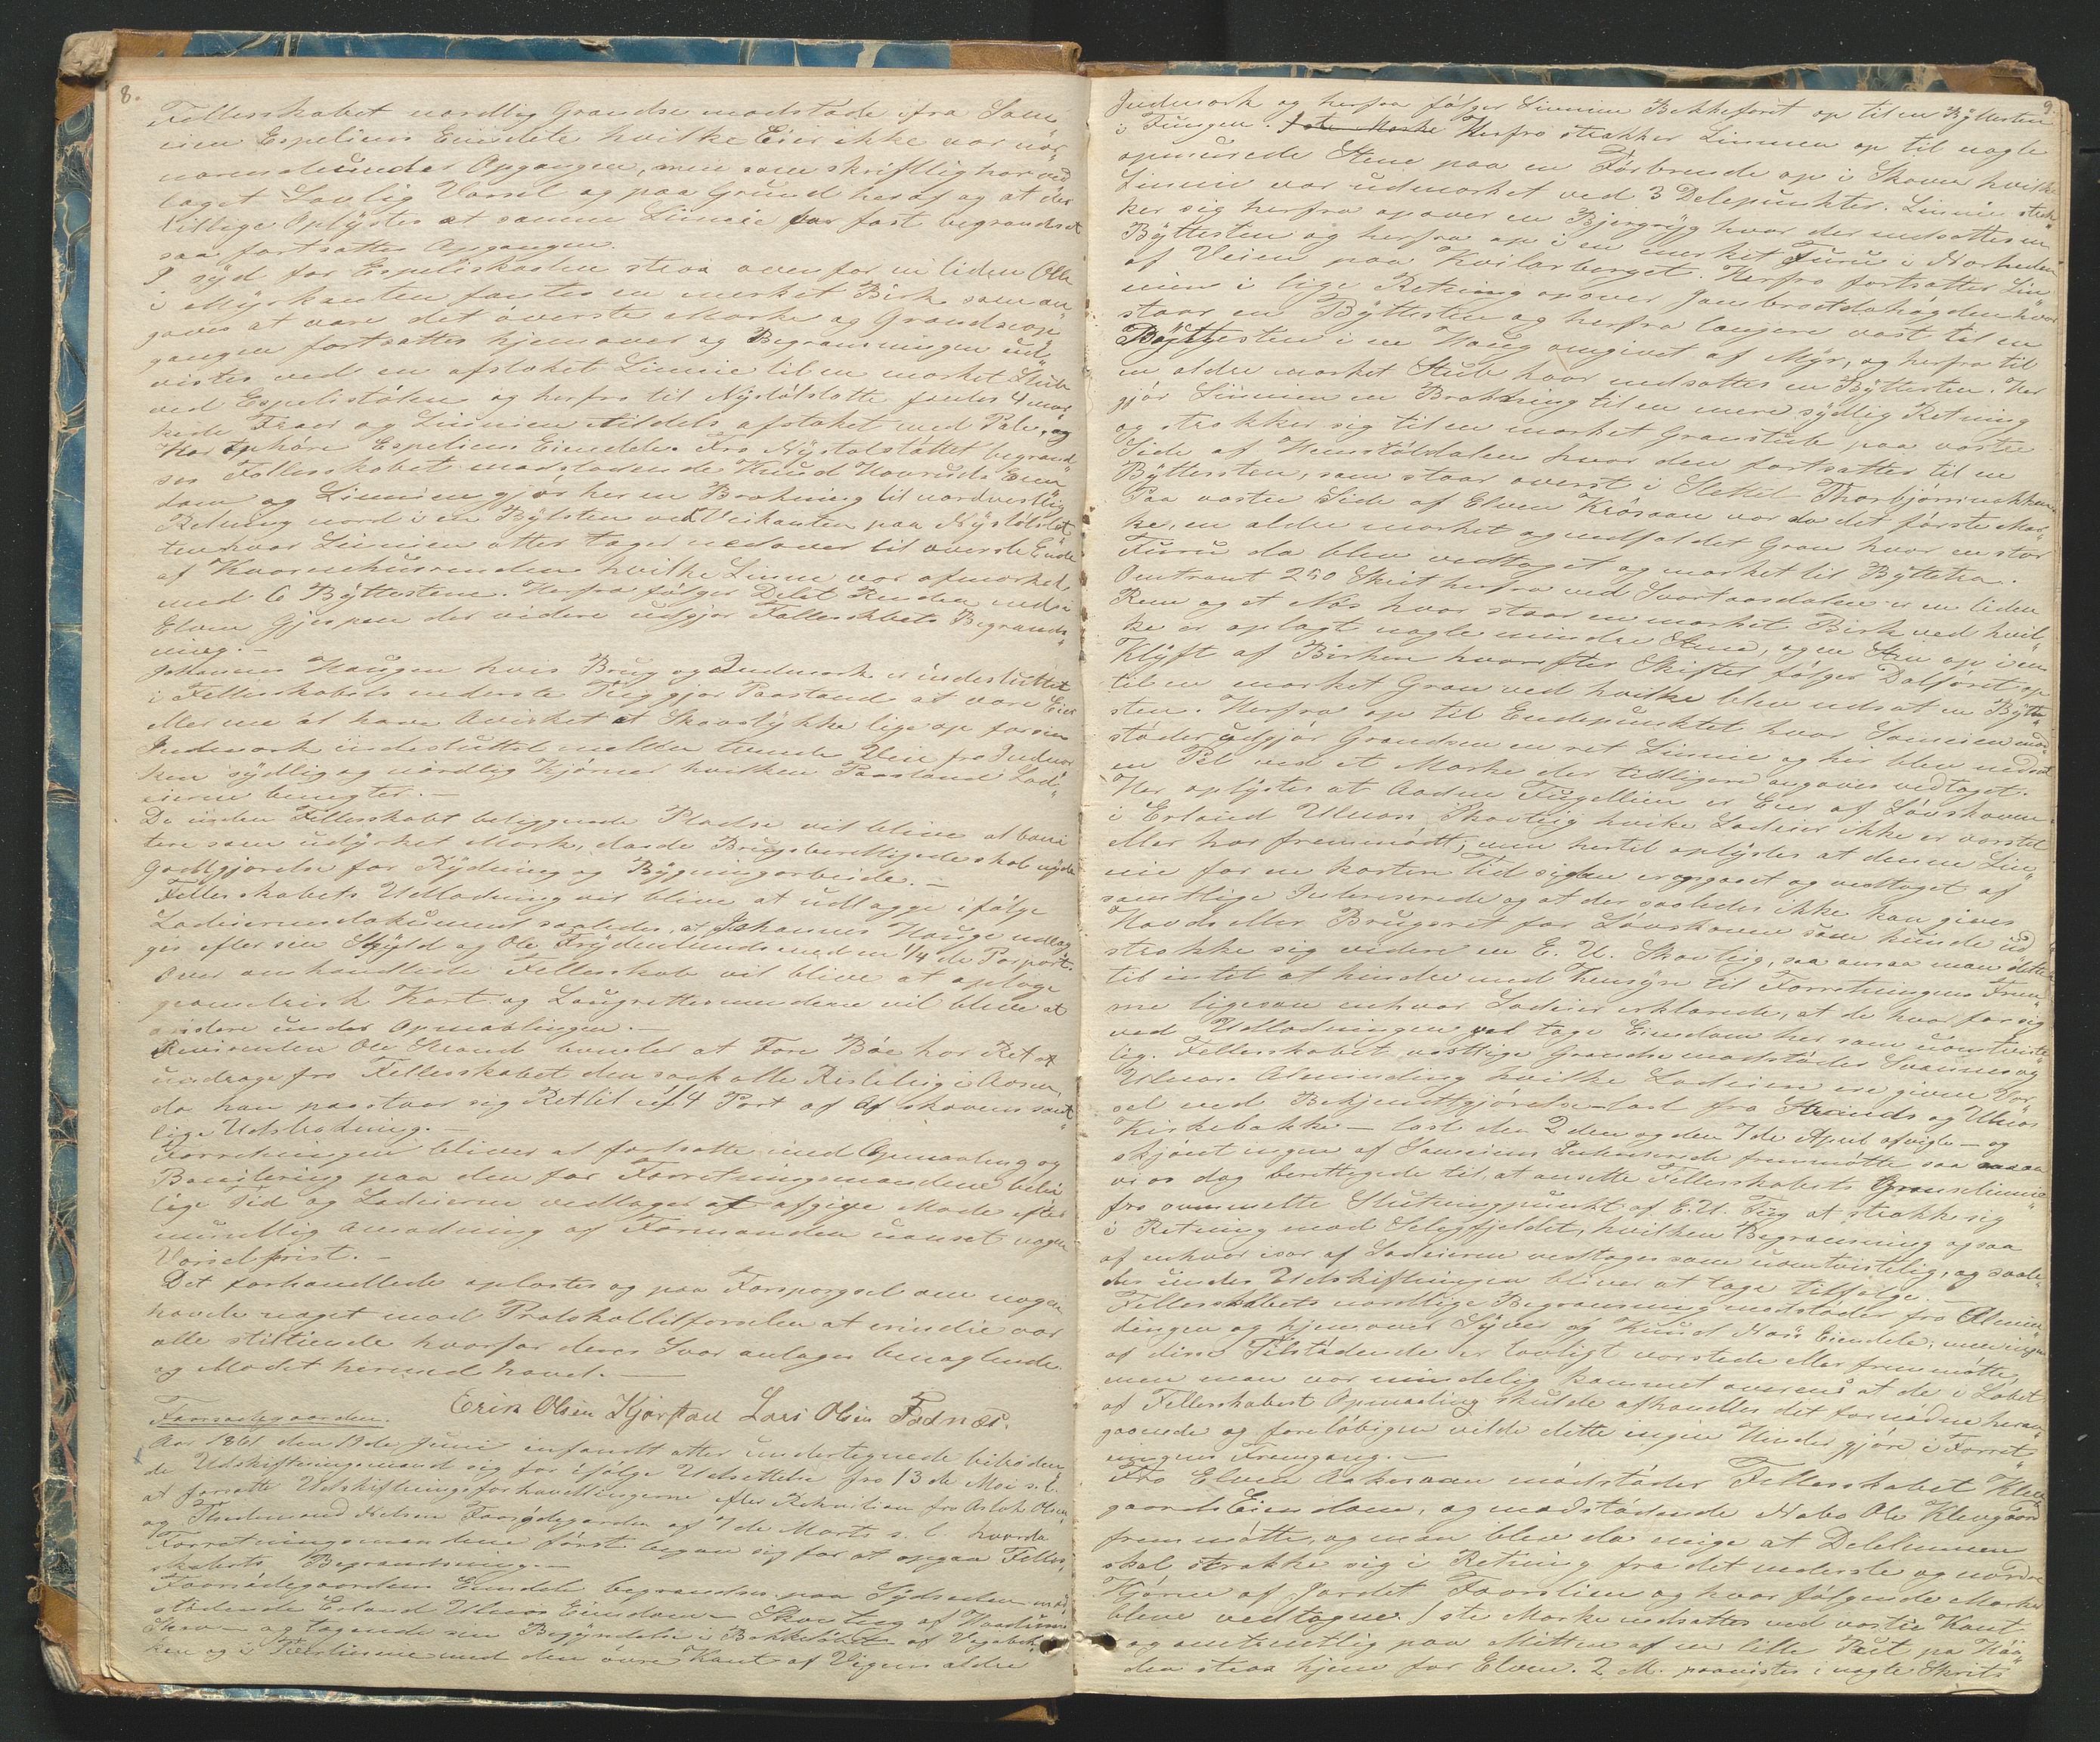 8.
Fellesskabet nordlig Grandse modstøde ifra Sam„
eien Espeliens Eiendele hvilke Eier ikke var nær„
værende under Opgangen, men som skriftllig har ved„
taget Lovlig Varsel og paa Grund heraf og at der
tillige Oplystes at samme Liinie var fast begrændset
saa fortsattes Opgangen.
I syd for Espeliskaslen strax ovenfor en liden Olle
i Myrkanten fantes en merket Birk som an„
gaves at være det øverste Mærke og Grændseop„
gangen fortsattes hjemover og Begrænsningen ud„
vistes ved en afstøket Linnie til en mærket Stub
ved Espelistølen og herfra til Nystølslotte fantes 4 mær„
kede Træer og Linnien tildels afstøket med Pæle, og
Her ophøre Espeliens Eiendele. Fra Nystølsløttet begrænd„
ses Fellesskabet modstødende Knud Haveruds Eien„
dom og Linnien gjør her en Brækning til nordvestlig
Retning nord i en Bytesten ved Veikanten paa Nystølsløt„
ten hvor Linnien atter tager nedover til øverste Ende
af Kværnehusrenden hvilke Linnie var afmærket
med 6 Byttestene. Herfra følger Delet Renden ned i
Elven Gjespen der videre udgjør Fellesskabets Begrænds„
ning.—
Johannes Haugen hvis Brug og Indmark er indesluttet
i Fellesskabets nederste Teig gjør Paastand at være Eier
eller me at have Avirket et Skovstykke lige op for sin
Indmark indesluttet mellem tvende Veie fra Indmar
ken sydlig og nordlig Hjørner hvilken Paastand Lod„
eierne benegter.—
De under Fellesskabt beliggende Pladse vil blive at boni„
tere som udyrket Mark, da de Brugsberettigede skal nyde
Godtgjørelse for Rydning og Bygningarbeide.—
Fellesskabets Udlodning vil blive at udlægge ifølge
Lodeiernes dokument saaledes, at Johannes Hauge udlæg„
ges efter sin Skyld og Ole Frydenlunds med en 1/4 de Parpart.
Over omhandlede Fellesskab vil blive at optage
geometrisk Kart og Laugrettesmendene vil blive at
assistere under Opmaalingen.—
Reqvirenten Ole Strand bemeler at Tore Bøe har Ret at
undrage fra Fellesskabet den saakalle Risteteig i Aasen,
da han paastaar sig Ret til 1/4 Part af Afskovens samt„
lige Udstrækning.—
Forretningen bliver at fortsætte med Opmaaling og
Bonitering paa den for Forretningsmændene belei„
lige Tid og Lodeierne vedtager at afgive Møde efter
mundlig Anmodning af Formanden uanset nogen
Varselfrist.—
Det forhandlede oplæstes og paa Forspørgsel om nogen
havde noget mod Protokoltilførselen at erindre var
alle stiltiende hvorfor deres Svar antages benægtende
og Mødet hermed hævet.—
Erik Olsen Kjørstad Lars Olsen Fodnæs.
Faarødegaarden.
Aar 1861 den 19de Juni infandt atter undertegnede bikiden
de Udskiftningsmænd sig for ifølge Udsettelse fra 13de Mai s. l.
at forsætte Udskiftningsforhandlingerne efter Rekvisition fra Aslak Olsen
og Thideman Nielsen Faarødegarden af 7de Marts s. l. hvorda
Forretningsmændene først begav sig for at opgaa Felles„
skabets Begrændsning.—
Faarødegaardens Eiendele begrændses paa Sydsiden mod„
stødende Erland Ulnæs Eiendom — Skovteig af Haadeims
Skov — og tagende sin Begyndelse i Bækkeløbet af Vegabæk„
ken og i Tverlinne med den øvre Kant af Vigens ældre
9
Indmark og herfra følger Linnien Bekkeforet op til en Byttesten
i Tungen. 1ste Mærke Herfra strækker Linnien op til nogle
opmurede Stene paa en Førbrende op i Skoven hvilke
Linnie var udmærket ved 3 Delepunkter. Linnien stræk„
ker sig herfra opover en Bjergryg hvor der nedsattes en
Byttesten og herfra op i en merket Furu i Nærheden
af Veien paa Kvilarberget. Herfra fortsætter Lin„
nien i lige Retning opover Jønbrotdahøgden hvor
staar en Byttesten og herfra længere vest til en
Byttesten i en Haug omgivet af Myr, og herfra til
en ældre mærket Stub hvor nedsattes en Byttesten. Her
gjør Linnien en Brækning til en mere sydlig Retning
og strækker sig til en mærket Granstub paa vestre
Side af Hemstøldalen hvor den fortsætter til en
Byttersten, som staar øverst i Slettet Thorbjørnsnekken
Paa vestre Side af Elven Krøsaan var da det første Mær„
ke, en ældre mærket og nedfaldet Gran hvor en stor
Furu da blev vedtaget og mærket til Byttetræ.
Omtrænt 250 Skrit herfra ved Svartaasdalen er en liden
Rem og et Nøs hvor staar en mærket Birk ved hvil„
ke er oplagt nogle mindre Stene, og en Sten op i en
Klyft af Birken hvorefter Skiftet følger Dalføret op
til en mærket Gran ved hvilke blev nedsat en Bytte„
sten. Herfra op til Endepunktet hvor Sameien mod„
støder udgjør Grændsen en ret Linnie og her blev nedsat
en Pel ved et Mærke der tidligere angaves vedtaget.
Her oplystes at Aadne Fugellien er Eier af Løvskoven
i Erland Ulnæs Skovteig hvilke Lodeier ikke er varslet
eller har fremmødt, men hertil oplystes at denne Lin„
nie for en kortere Tid siden er opgaaet og vedtaget af
samtlige Intereserede og at der saaledes ikke kan gives
Havd eller Brugsret for Løvskoven som kunde ud„
strække sig videre en E. U. Skovteig, saa ansaa man dette
til intet at hindre med Hensyn til Forretningens Frem„
me ligesom enhver Lodeier erklærede, at de hver for sig
ved Udlodningen vil tage Eiendom her som uomtviste„
lig. Fellesskabet vestlige Grandse modstøder Svennes og
Ulnæs Alminding hvilke Lodeiere ere given Var„
sel ved Bekjentgjørelse læst fra Strands og Ulnæs
Kirkebakke — læst den 2den og den 7de April afvigte — og
skjønt ingen af Sameiens Intereserede fremmøtte saa ansaa
vi os dog berettigede til, at ansette Fellesskabets Grænselinnie
fra ommelte Slutningspunkt af E. U. Teig at strække sig
i Retning mod Selegfjeldet, hvilken Begrænsning ogsaa
af enhver især af Lodeierne vedtages som uomtvistelig, og saale„
des under Udskiftningen bliver at tage tilfølge.—
Fellesskabets nordlige Begrænsning modstøder fra Almin„
dingen og hjemover Syver og Knud Næs Eiendele; men ingen
af disse Tilstødende er lovligt varslede eller fremmøtte,
men man var mindelig kommet overens at de i Løbet
af Fellesskabest Opmaaling skulde afhandles det fornødne heran„
gaaende og foreløbigen vilde dette ingen Hinder gjøre i Forret„
ningens Fremgang.—
Fra Elven Aakeraaen modstøder Fellesskabet Kleve„
gaards Eiendom, og modstødende Nabo Ole Klevgaard
fremmøtte, og man blev da enige at Delelinnen
skal strække sig i Retning fra det nederste og nordre
Hjørne af Jordet Faarslien og hvor følgende Mærker
bleve vedtagne. 1ste Mærke nedsattes ved vestre Kant
og omtrentlig paa Mitten af en lille Put pa Høg„
den strax hjem for Elven. 2. M. paavistes i nogle Skrits